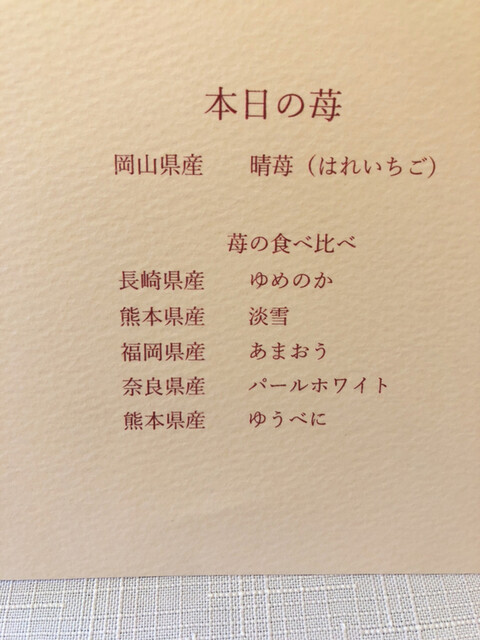 本日の苺
岡山県産 晴苺（はれいちご）
苺の食べ比べ
長崎県産 ゆめのか
熊本県産 淡雪
福岡県産 あまおう
奈良県産 パールホワイト
熊本県産 ゆうべに